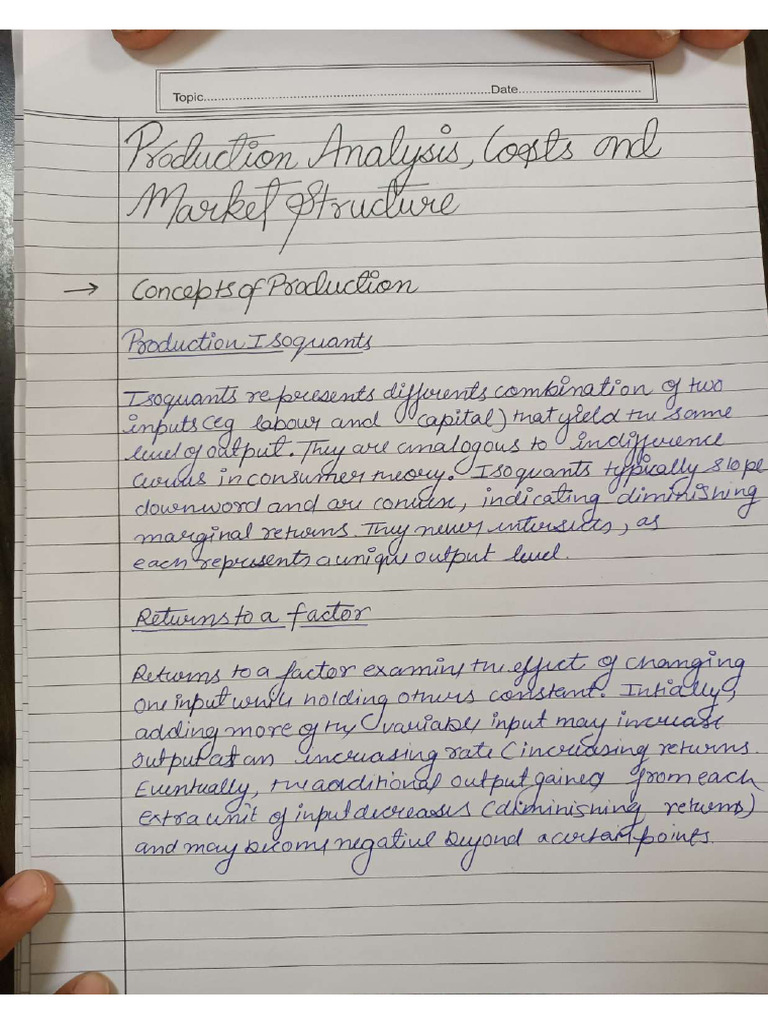 Topic.......................................................................................Date...................................
Production Analysis, Costs and
Market Structure
→ Concepts of Production
Production Isoquants
Isoquants represents differents combination of two
inputs (eg labour and capital) that yield the same
level of output. They are analogous to indifference
curves in consumer theory. Isoquants typically slope
downword and are convex, indicating diminishing
marginal returns. They never intersects, as
each represents a unique output level.
Returns to a factor
Returns to a factor examine the effect of changing
one input while holding others constant. Intially,
adding more of the variable input may increase
output at an increasing rate (increasing returns.
Eventually, the additional output gained from each
extra unit of input decreases (diminishing returns)
and may become negative beyond a certain points.